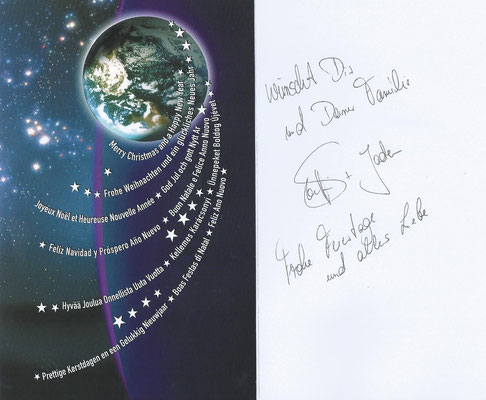 Merry Christmas and a Happy New Year
Frohe Weihnachten und ein glückliches Neues Jahr
Joyeux Noël et Heureuse Nouvelle Année ★ God Jul och gott Nytt År
Feliz Navidad y Próspero Año Nuevo ★ Buon Natale e Felice Anno Nuovo
Hyvää Joulua Onnellista Uuta Vuotta ★ Kellemes Karácsonyi ★ Ünnepeket Boldog Újévet
Prettige Kerstdagen en een Gelukkig Nieuwjaar ★ Boas Festas di Natal ★ Feliz Ano Nuovo
wünscht Dir
und Deiner Familie
+
Frohe Festtage
und alles Liebe